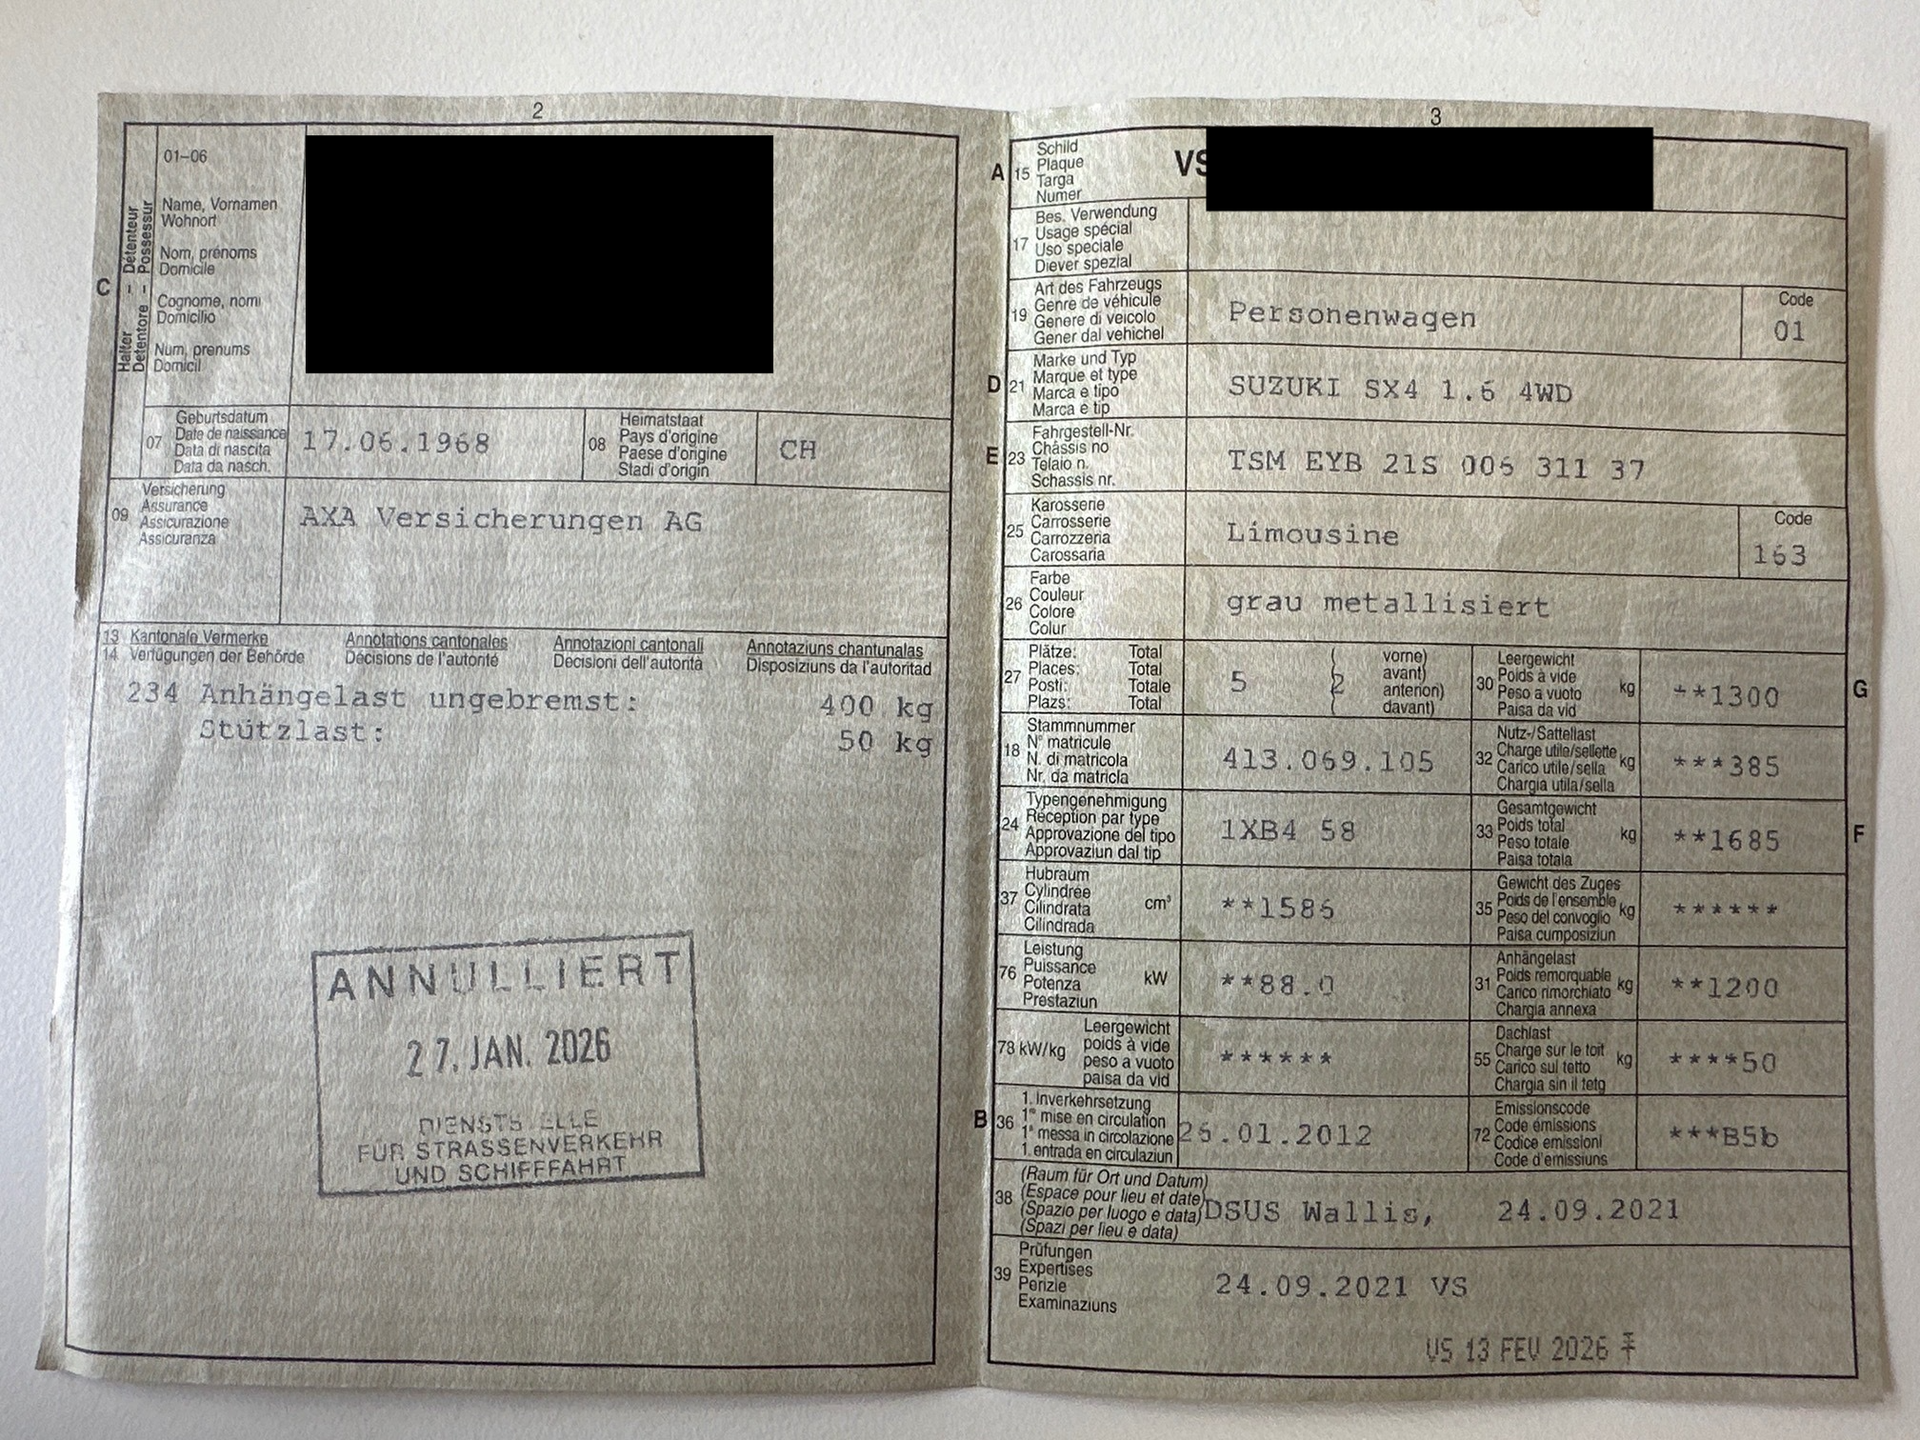 2
01–06
Name, Vornamen
Wohnort
Nom, prénoms
Domicile
Cognome, nomi
Domicilio
Num, prenums
Domicil
C
Halter – Détenteur
Detentore – Possessur
07
Geburtsdatum
Date de naissance
Data di nascita
Data da nasch.
17.06.1968
08
Heimatstaat
Pays d'origine
Paese d'origine
Stadi d'origin
CH
09
Versicherung
Assurance
Assicurazione
Assicuranza
AXA Versicherungen AG
13 Kantonale Vermerke Annotations cantonales Annotazioni cantonali Annotaziuns chantunalas
14 Verfügungen der Behörde Décisions de l'autorité Decisioni dell'autorità Disposiziuns da l'autoritad
234 Anhängelast ungebremst: 400 kg
Stützlast: 50 kg
ANNULLIERT
27. JAN. 2026
DIENSTSTELLE
FÜR STRASSENVERKEHR
UND SCHIFFFAHRT
3
A 15
Schild
Plaque
Targa
Numer
VS
17
Bes. Verwendung
Usage spécial
Uso speciale
Diever spezial
19
Art des Fahrzeugs
Genre de véhicule
Genere di veicolo
Gener dal vehichel
Personenwagen
Code
01
D 21
Marke und Typ
Marque et type
Marca e tipo
Marca e tip
SUZUKI SX4 1.6 4WD
E 23
Fahrgestell-Nr.
Châssis no
Telaio n.
Schassis nr.
TSM EYB 21S 006 311 37
25
Karosserie
Carrosserie
Carrozzeria
Carossaria
Limousine
Code
163
26
Farbe
Couleur
Colore
Colur
grau metallisiert
27
Plätze: Total
Places: Total
Posti: Totale
Plazs: Total
5 2
vorne)
avant)
anteriori)
davant)
30
Leergewicht
Poids à vide
Peso a vuoto
Paisa da vid
kg
**1300
G
18
Stammnummer
N° matricule
N. di matricola
Nr. da matricla
413.069.105
32
Nutz-/Sattellast
Charge utile/sellette
Carico utile/sella
Chargia utila/sella
kg
***385
24
Typengenehmigung
Réception par type
Approvazione del tipo
Approvaziun dal tip
1XB4 58
33
Gesamtgewicht
Poids total
Peso totale
Paisa totala
kg
**1685
F
37
Hubraum
Cylindrée
Cilindrata
Cilindrada
cm³
**1586
35
Gewicht des Zuges
Poids de l'ensemble
Peso del convoglio
Paisa cumposiziun
kg
******
76
Leistung
Puissance
Potenza
Prestaziun
kW
**88.0
31
Anhängelast
Poids remorquable
Carico rimorchiato
Chargia annexa
kg
**1200
78 kW/kg
Leergewicht
poids à vide
peso a vuoto
paisa da vid
******
55
Dachlast
Charge sur le toit
Carico sul tetto
Chargia sin il tetg
kg
****50
B 36
1. Inverkehrsetzung
1re mise en circulation
1a messa in circolazione
1. entrada en circulaziun
26.01.2012
72
Emissionscode
Code émissions
Codice emissioni
Code d'emissiuns
***B5b
38
(Raum für Ort und Datum)
(Espace pour lieu et date)
(Spazio per luogo e data)
(Spazi per lieu e data)
DSUS Wallis, 24.09.2021
39
Prüfungen
Expertises
Perizie
Examinaziuns
24.09.2021 VS
VS 13 FEV 2026